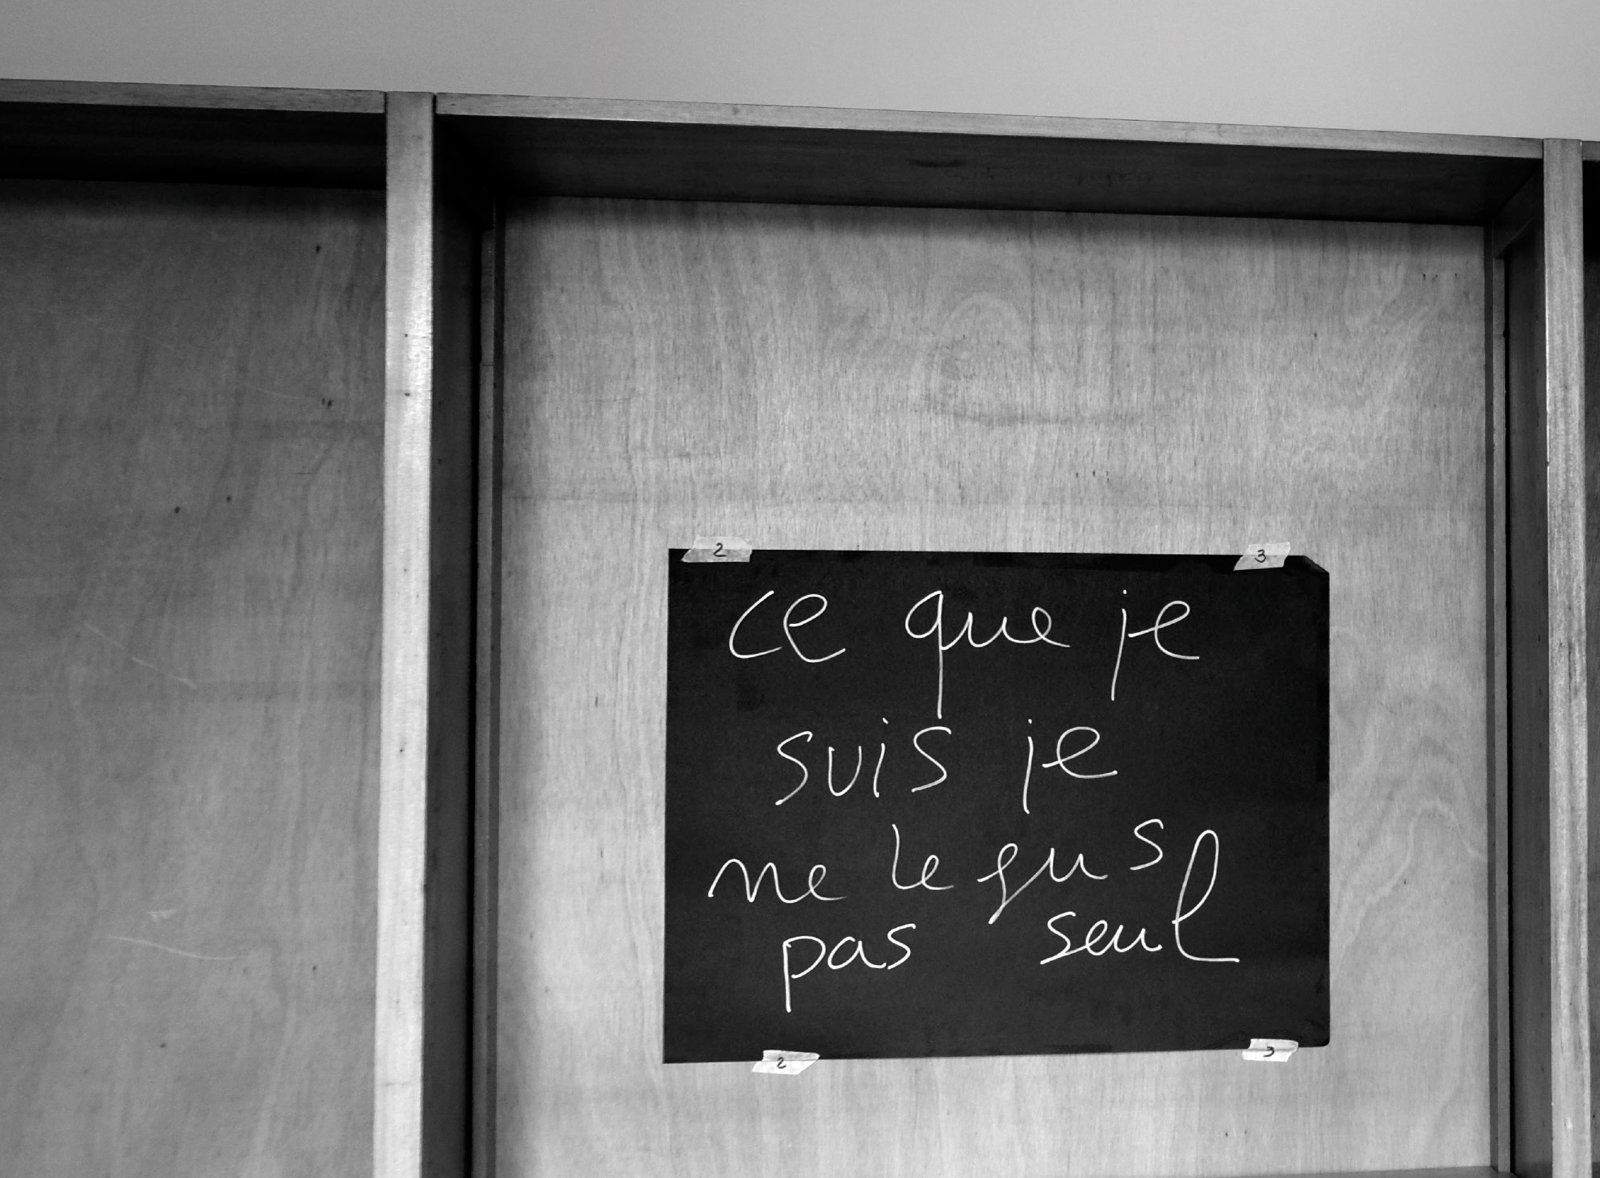 2 3
ce que je
suis je
ne le fus
pas seul
2 3